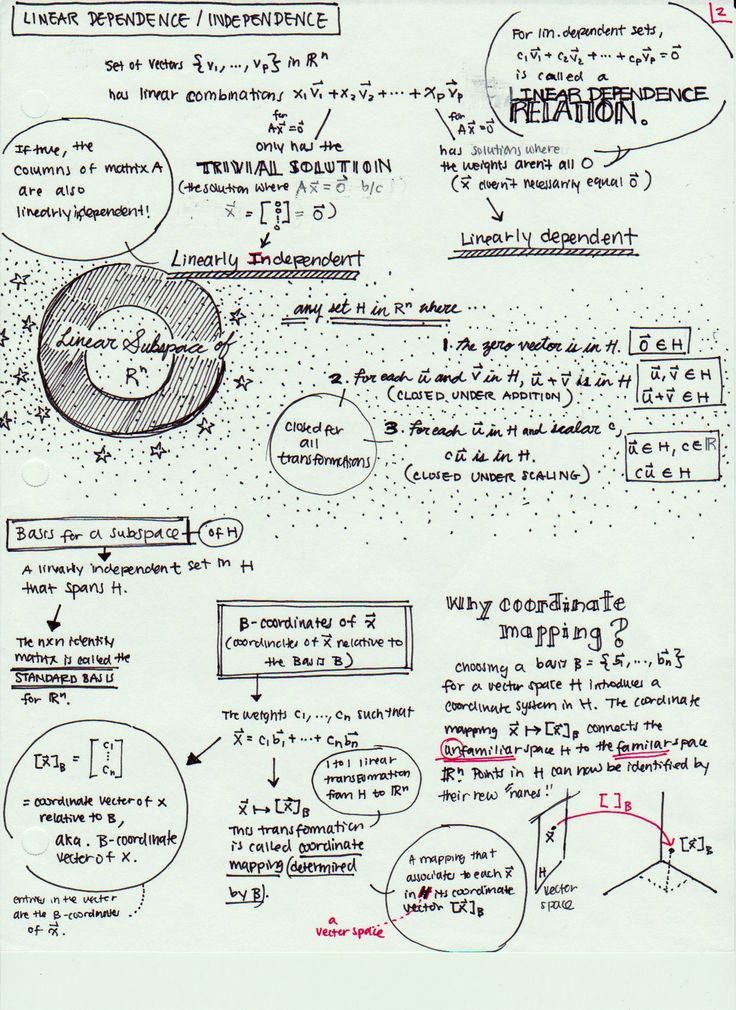 LINEAR DEPENDENCE / INDEPENDENCE
2
Set of vectors {v₁, ..., vₚ} in ℝⁿ
has linear combinations x₁v⃗₁ + x₂v⃗₂ + ··· + xₚv⃗ₚ
For lin. dependent sets,
c₁v⃗₁ + c₂v⃗₂ + ··· + cₚv⃗ₚ = 0⃗
is called a
LINEAR DEPENDENCE
RELATION.
for
Ax⃗=0⃗
only has the
TRIVIAL SOLUTION
(the solution where Ax⃗ = 0⃗ b/c
x⃗ = [0 0 ⋮ 0] = 0⃗)
Linearly Independent
If true, the
columns of matrix A
are also
linearly independent!
for
Ax⃗=0⃗
has solutions where
the weights aren't all 0
(x⃗ aren't necessarily equal 0⃗)
Linearly dependent
Linear Subspace of
ℝⁿ
any set H in ℝⁿ where ...
1. the zero vector is in H. 0⃗ ∈ H
2. for each u⃗ and v⃗ in H, u⃗ + v⃗ is in H
(CLOSED UNDER ADDITION)
u⃗, v⃗ ∈ H
u⃗+v⃗ ∈ H
3. for each u⃗ in H and scalar c,
cu⃗ is in H.
(CLOSED UNDER SCALING)
u⃗ ∈ H, c ∈ ℝ
cu⃗ ∈ H
closed for
all
transformations
Basis for a subspace of H
A linearly independent set in H
that spans H.
The nxn identity
matrix is called the
STANDARD BASIS
for ℝⁿ.
B-coordinates of x⃗
(coordinates of x⃗ relative to
the Basis B)
The weights c₁, ..., cₙ such that
x⃗ = c₁b⃗₁ + ··· + cₙb⃗ₙ
[x⃗]_B = [c₁ ⋮ cₙ]
= coordinate vector of x
relative to B,
aka. B-coordinate
vector of x.
entries in the vector
are the B-coordinates
of x⃗.
x⃗ ↦ [x⃗]_B
This transformation
is called coordinate
mapping (determined
by B).
1 to 1 linear
transformation
from H to ℝⁿ
A mapping that
associates to each x⃗
in H its coordinate
vector [x⃗]_B
a
vector space
Why coordinate
mapping?
choosing a basis B = {b⃗₁, ..., b⃗ₙ}
for a vector space H introduces a
coordinate system in H. The coordinate
mapping x⃗ ↦ [x⃗]_B connects the
unfamiliar space H to the familar space
ℝⁿ. Points in H can now be identified by
their new "names!"
[ ]_B
x⃗
[x⃗]_B
H
vector
space